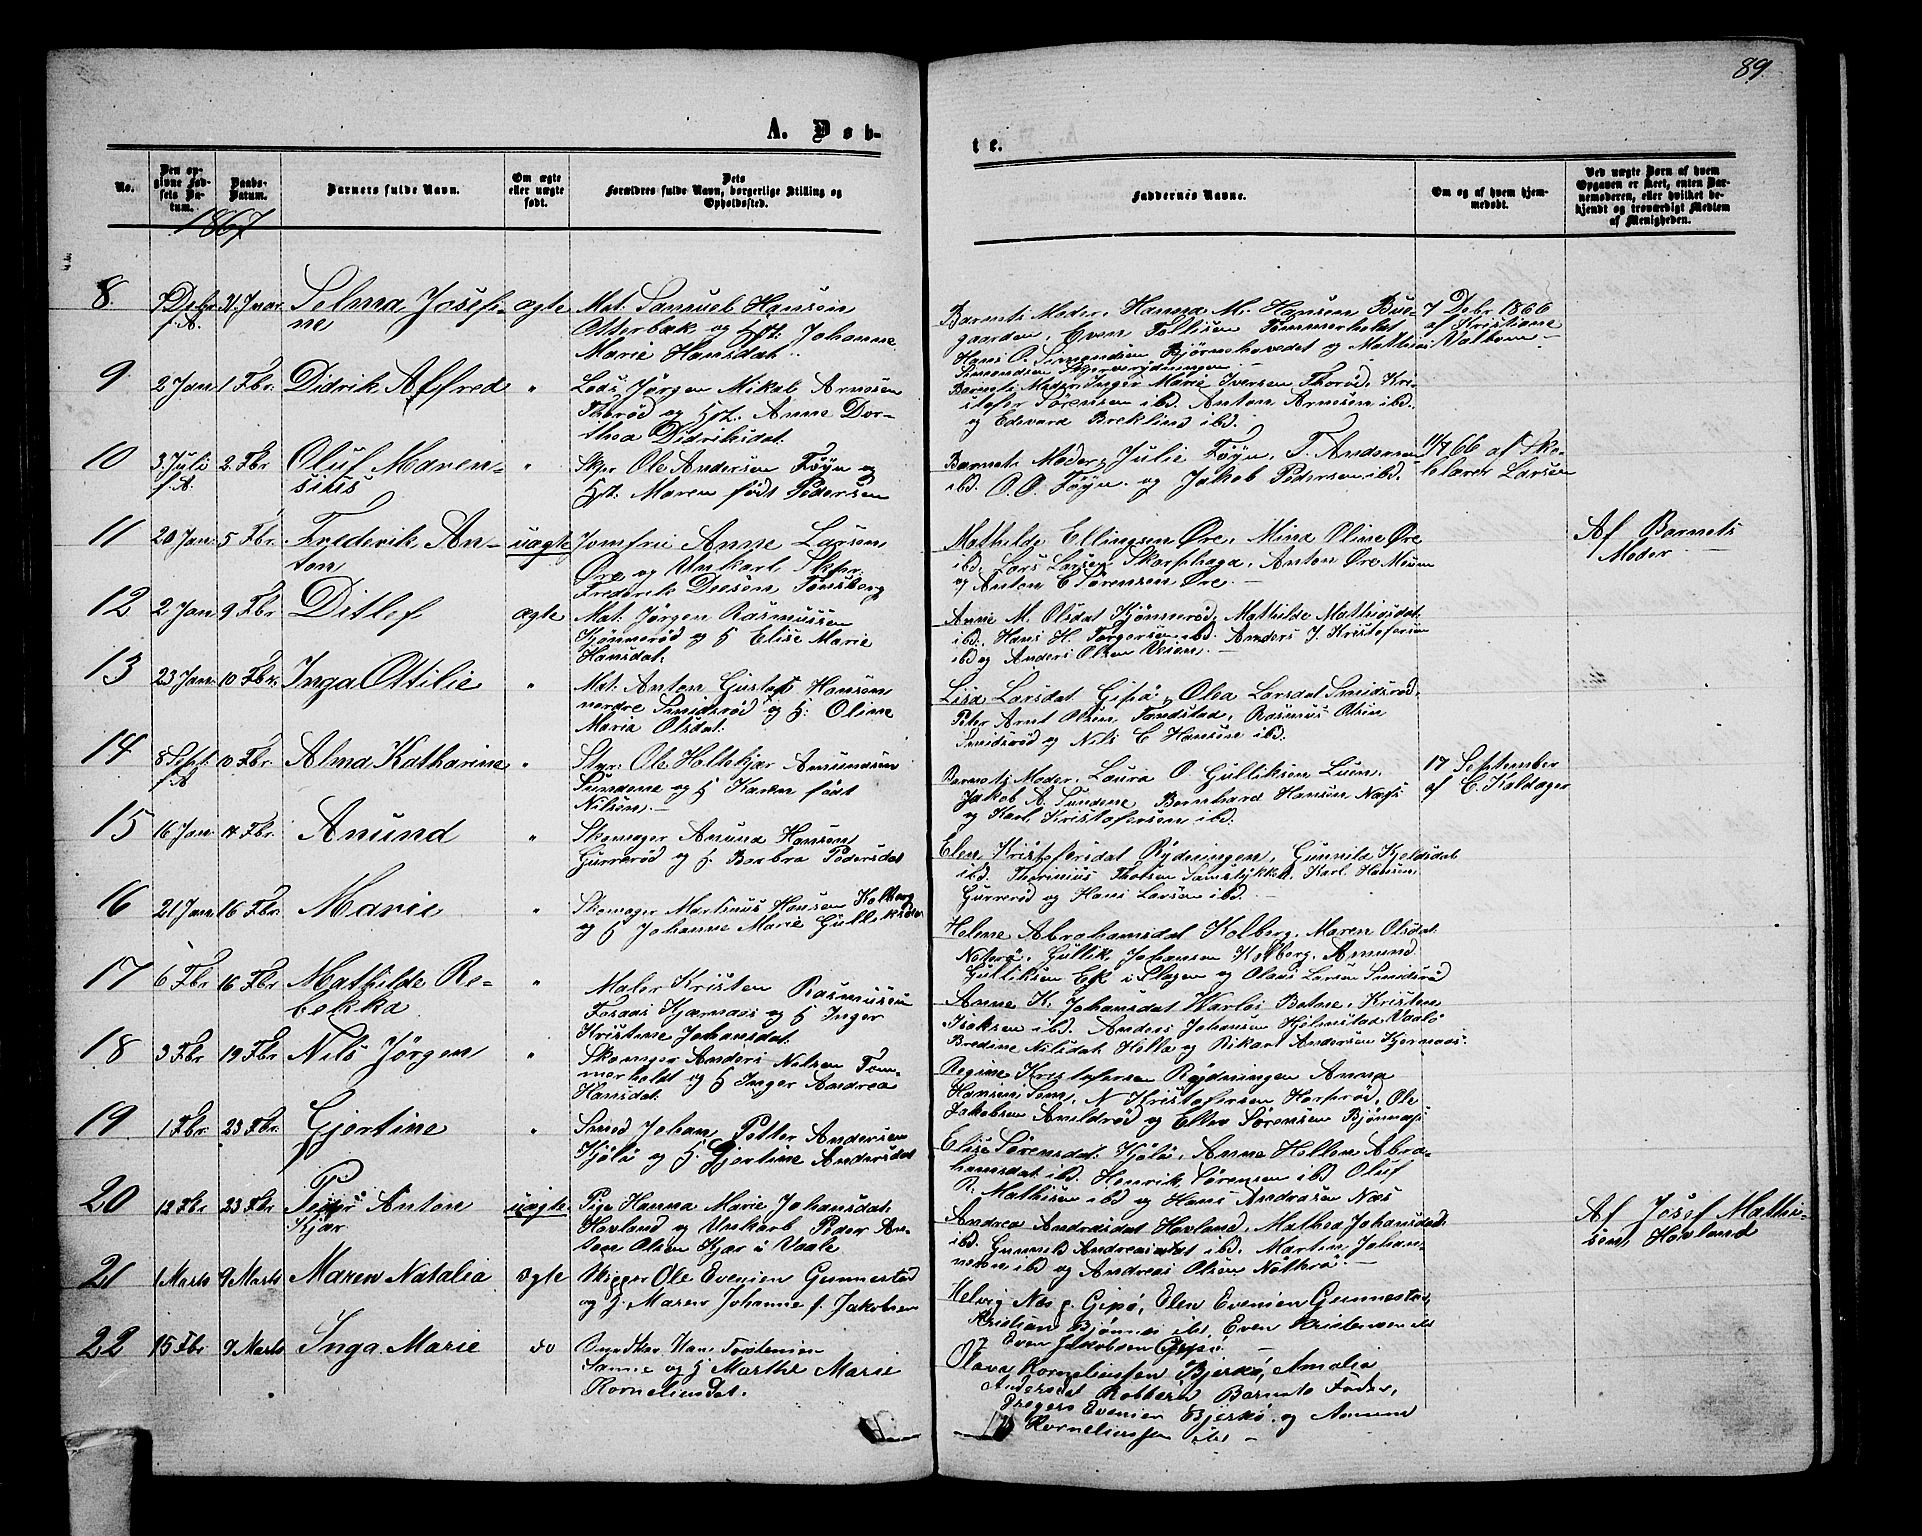 89
A. Døb-
te.
No.
Den op-
givne Fød-
sels Da-
tum.
Daabs-
Datum.
Barnets fulde Navn.
Om ægte
eller uægte
født.
Dets
Forældres fulde Navn, borgerlige Stilling og
Opholdssted.
Faddernes Navne.
Om og af hvem hjem-
medøbt.
Ved uægte Børn af hvem
Opgaven er skeet, enten Bar-
nemoderen, eller hvilket be-
kjendt og troværdigt Medlem
af Menigheden.
1867
8. 7 Debr f.A. 31. Januar Selma Josefi-
ne
ægte Mat. Samuel Hansen
Otterbæk og Hst. Johanne
Marie Hansdat.
Barnets Moder, Hanna M. Hansen Bue-
gaarden, Even Tollefsen Tømmerholt
Hans O. Simonsen Bjørnehovedet og Mathias
7 Debr 1866
af Kristiane
Valbom
9 2 Jan 1 Fbr. Didrik Alfred "
Lods Jørgen Mikal Arnesen
Thorød og Hst. Anne Dor-
thea Didriksdat.
Barnets Moder, Inger Marie Iversen Thorød, Kri-
stofer Sørensen ibd. Anton Arnesen ibd.
og Edvard Breklind ibd.
10 3. Juli f.A. 2. Fbr Oluf Maren-
sius
"
Skpr. Ole Andersen Føyn og
Hst. Maren født Pedersen
Barnets Moder, Julie Føyn, T. Andersen
ibd. O. O. Føyn og Jakob Pedersen ibd.
11/7 66 af Sko-
lelærer Larsen
11 20 Jan. 5 Fbr. Frederik An-
ton
uægte
Jomfru Anne Larsen
Øre og Unkarl Skpr.
Frederik Deesen Tønsberg
Mathilde Ellingsen Øre, Mina Oline Øre
ibd. Lars Larsen Skarphaga, Anton Øre
og Anton E Sørensen Øre.
Af Barnets
Moder
12 2 Jan 9 Fbr. Ditlef ægte
Mat. Jørgen Rasmussen
Kjønnerød og H Elise Marie
Hansdat.
Anne M. Olsdat Kjønnerød, Mathilde Mathiasdat.
ibd. Hans H. Torgersen ibd. Anders J. Kristofersen
ibd og Anders Olsen Veien.
13 23 Jan. 10 Fbr. Inga Ottilie "
Mat. Anton Gustaf Hansen
nordre Smidsrød og H. Oline
Maria Olsdat.
Lisa Larsdat Gipø, Olea Larsdat Smidsrød,
Peter Arnt Olsen, Tandstad, Rasmus Olsen
Smidsrød og Nils E Hansen ibd.
14 8 Sept. f.A 10 Fbr. Alma Katharine "
Skpr. Ole Holtekjær Amundsen
Sundene og H Karen født
Nilsen
Barnets Moder, Laura O. Gulliksen Luen,
Jakob A. Sundene, Bernhard Hansen Næs
og Karl Kristofersen ibd.
17 September
af C. Kaldager
15 16 Jan 14 Fbr. Anund "
Skomager Anund Hansen
Gurrerød og H. Barbra Pedersdat
Elen Kristofersdat Rydningen, Gunnild Kjeldsdat
ibd. Thorinius Thorsen Samstykket, Karl Hansen,
Gurrerød og Hans Larsen ibd.
16 21 Jan 16 Fbr. Marie "
Skomager Martinus Hansen Kolberg
og H Johanne Marie Gulliksdat.
Helene Abrahamsdat Kolberg, Maren Olsdat
Noterø, Gullik Johansen Kolberg, Amund
Gulliksen Ek i Slagen og Olaus Larsen Smidsrød
17 6 Fbr 16 Fbr Mathilde Re-
bekka
"
Maler Kristen Rasmussen
Fosaas Kjærnaas og H Inger
Kristine Johansdat.
Anne K. Johansdat Warløs Botne, Kristen
Isaksen ibd. Anders Johansen Hjelmstad Vaalø
Bredine Nilsdat Hella og Rikard Andersen Kjernaas.
18 3 Fbr 19 Fbr Nils Jørgen "
Skomager Anders Nilsen Tøm-
merholdt og H Inger Andrea
Hansdat.
Regine Kristofersen Rydningen Anna
Hansen Sem, N Kristofersen Harferød, Ole
Jakobsen Anildrød og Ellev Sørensen Bjønnæs
19 1 Fbr. 23 Fbr. Gjertine "
Smed Johan Petter Andersen
Kjøle og H. Gjertine Andersdat
Elise Sørensdat. Kjøle, Anne Hellene Abra-
hamsdat ibd. Henrik Sørensen ibd Oluf
R. Mathisen ibd og Hans Andrasen Næs
20 12 Fbr 23 Fbr. Peder Anton
Kjær
uægte.
Pige Hanna Marie Johansdat
Hovland og Unkarl Peder An-
ton Olsen Kjær i Vaale
Andrea Andreasdat Hovland, Mathea Johansdat
ibd. Gunnild Andreasdat ibd. Martin Johan-
nesen ibd og Andreas Olsen Nøtherø.
Af Josef Mathi-
sen, Hovland
21 1 Marts 9 Marts Maren Natalia ægte
Skipper Ole Evensen Gunnestad
og H. Maren Johanne f. Jakobsen
Helvig Næs p. Gipø, Elen Evensen Gunnestad,
Kristian Bjønnes ibd, Even Kristensen ibd
og Even Jakobsen Gipø
22 15 Fbr 9 Marts Inga Marie do
Hans Torstensen
og H Marthe Marie
Korneliusdat.
Olava Korneliussen Bjerkø, Amalia
Andersdat Robberød Barnets Fader,
Gregers Evensen Bjerkø og Amund
Korneliussen ibd